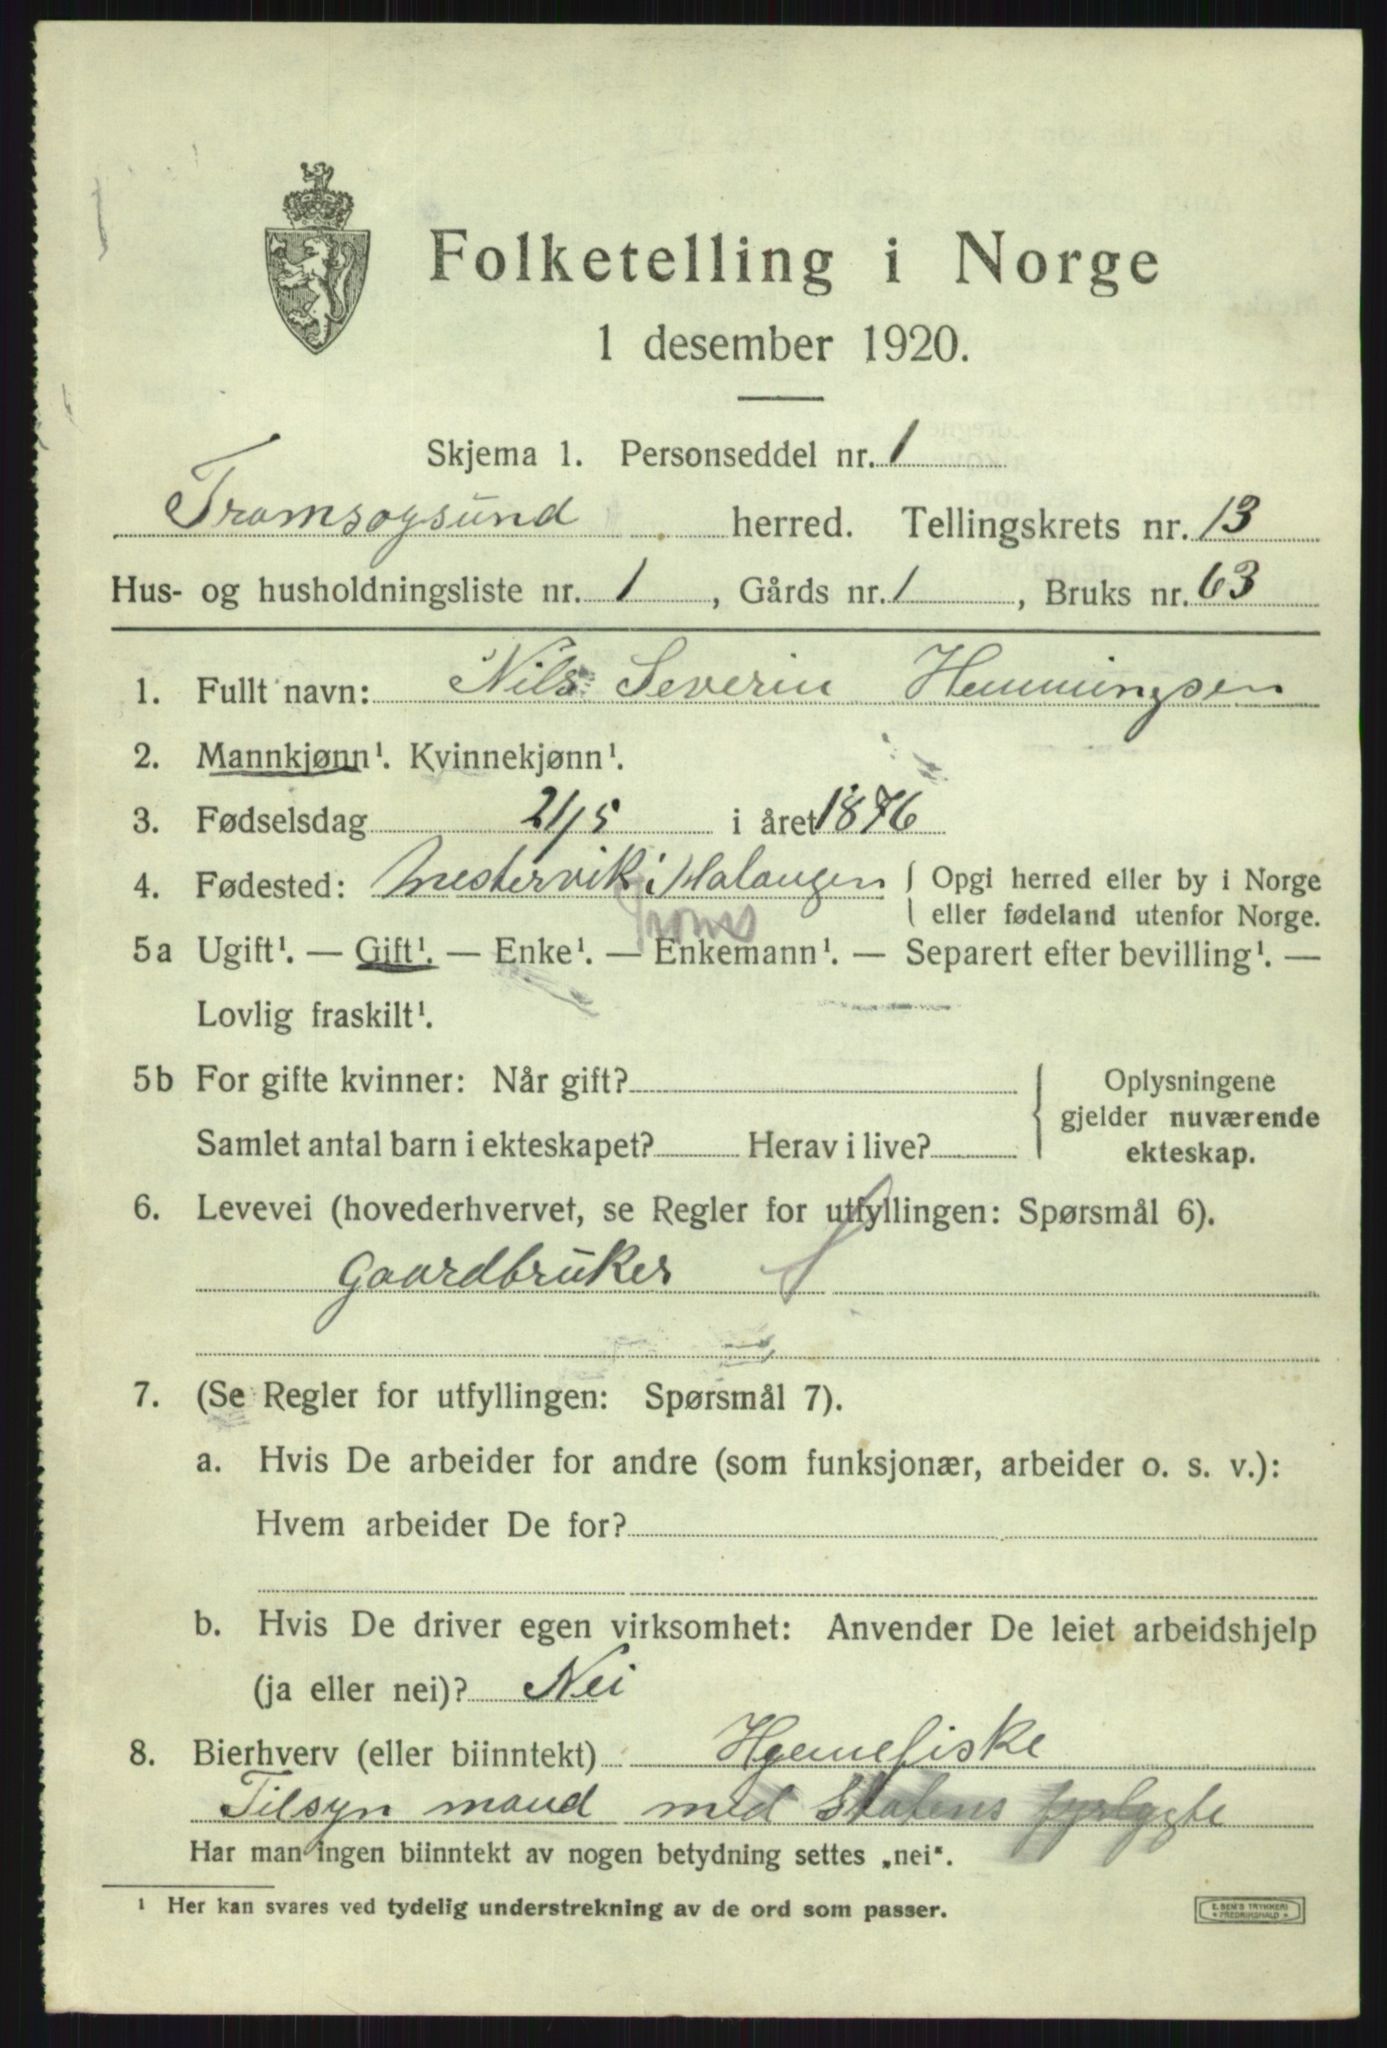 Folketelling i Norge
1 desember 1920.
Skjema 1. Personseddel nr. 1
Tromsøysund herred. Tellingskrets nr. 13
Hus- og husholdningsliste nr. 1, Gårds nr. 1, Bruks nr. 63
1. Fullt navn: Nils Severin Hemmingsen
2. Mannkjønn¹. Kvinnekjønn¹.
3. Fødselsdag 21/5 i året 1876
4. Fødested: Mestervik i Malangen { Opgi herred eller by i Norge
eller fødeland utenfor Norge.
Troms
5a Ugift¹. — Gift¹. — Enke¹. — Enkemann¹. — Separert efter bevilling¹. —
Lovlig fraskilt¹.
5b For gifte kvinner: Når gift?
Samlet antal barn i ekteskapet? Herav i live?
{ Oplysningene
gjelder nuværende
ekteskap.
6. Levevei (hovederhvervet, se Regler for utfyllingen: Spørsmål 6).
Gaardbruker
7. (Se Regler for utfyllingen: Spørsmål 7).
a. Hvis De arbeider for andre (som funksjonær, arbeider o. s. v.):
Hvem arbeider De for?
b. Hvis De driver egen virksomhet: Anvender De leiet arbeidshjelp
(ja eller nei)? Nei
8. Bierhverv (eller biinntekt) Hjemefiske
Tilsyn mand med Statens fyrlygte
Har man ingen biinntekt av nogen betydning settes „nei“.
¹ Her kan svares ved tydelig understrekning av de ord som passer.
E. SEM'S TRYKKERI
FREDRIKSHALD